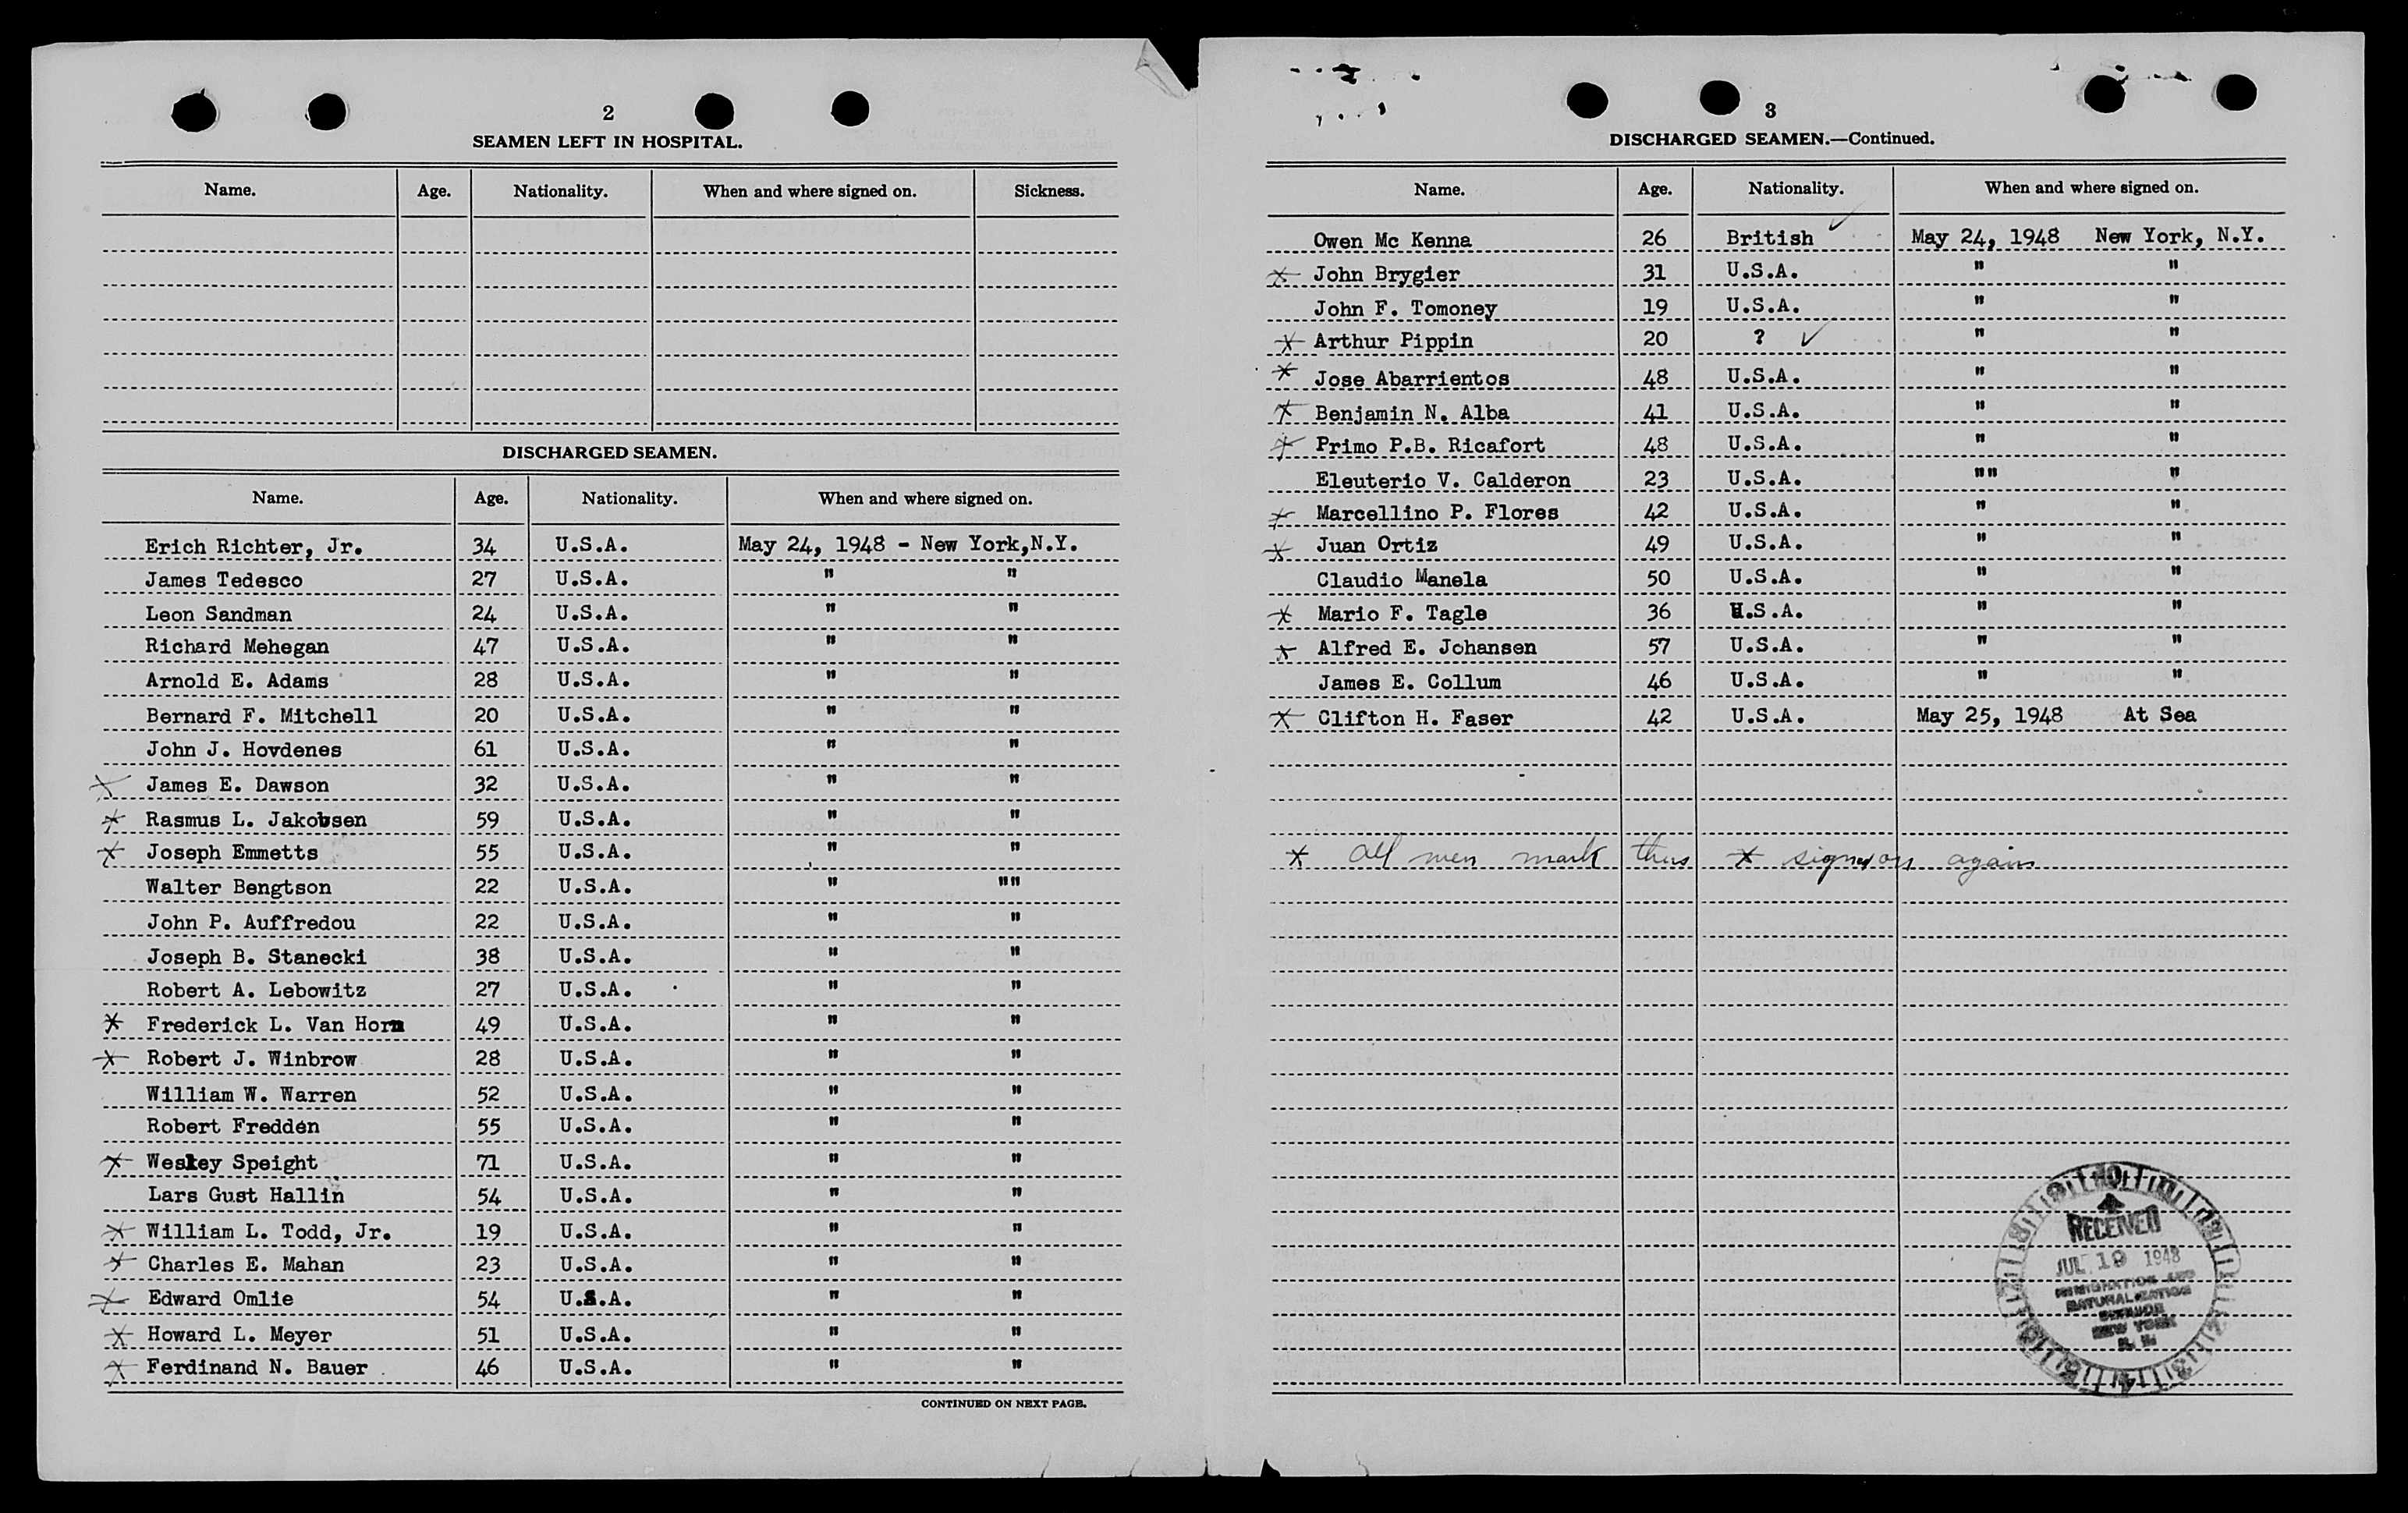 2
SEAMEN LEFT IN HOSPITAL.
Name. Age. Nationality. When and where signed on. Sickness.
DISCHARGED SEAMEN.
Name. Age. Nationality. When and where signed on.
Erich Richter, Jr. 34 U.S.A. May 24, 1948 - New York,N.Y.
James Tedesco 27 U.S.A. " "
Leon Sandman 24 U.S.A. " "
Richard Mehegan 47 U.S.A. " "
Arnold E. Adams 28 U.S.A. " "
Bernard F. Mitchell 20 U.S.A. " "
John J. Hovdenes 61 U.S.A. " "
* James E. Dawson 32 U.S.A. " "
* Rasmus L. Jakobsen 59 U.S.A. " "
* Joseph Emmetts 55 U.S.A. " "
Walter Bengtson 22 U.S.A. " ""
John P. Auffredou 22 U.S.A. " "
Joseph B. Stanecki 38 U.S.A. " "
Robert A. Lebowitz 27 U.S.A. " "
* Frederick L. Van Horn 49 U.S.A. " "
* Robert J. Winbrow 28 U.S.A. " "
William W. Warren 52 U.S.A. " "
Robert Fredden 55 U.S.A. " "
* Wesley Speight 71 U.S.A. " "
Lars Gust Hallin 54 U.S.A. " "
* William L. Todd, Jr. 19 U.S.A. " "
* Charles E. Mahan 23 U.S.A. " "
* Edward Omlie 54 U.S.A. " "
* Howard L. Meyer 51 U.S.A. " "
* Ferdinand N. Bauer 46 U.S.A. " "
CONTINUED ON NEXT PAGE.
3
DISCHARGED SEAMEN.—Continued.
Name. Age. Nationality. When and where signed on.
Owen Mc Kenna 26 British ✓ May 24, 1948 New York, N.Y.
* John Brygier 31 U.S.A. " "
John F. Tomoney 19 U.S.A. " "
* Arthur Pippin 20 ? ✓ " "
* Jose Abarrientos 48 U.S.A. " "
* Benjamin N. Alba 41 U.S.A. " "
* Primo P.B. Ricafort 48 U.S.A. " "
Eleuterio V. Calderon 23 U.S.A. "" "
* Marcellino P. Flores 42 U.S.A. " "
* Juan Ortiz 49 U.S.A. " "
Claudio Manela 50 U.S.A. " "
* Mario F. Tagle 36 U.S.A. " "
* Alfred E. Johansen 57 U.S.A. " "
James E. Collum 46 U.S.A. " "
* Clifton H. Faser 42 U.S.A. May 25, 1948 At Sea
* All men mark thus * signed on again
RECEIVED
JUL 19 1948
IMMIGRATION AND
NATURALIZATION
SERVICE
NEW YORK